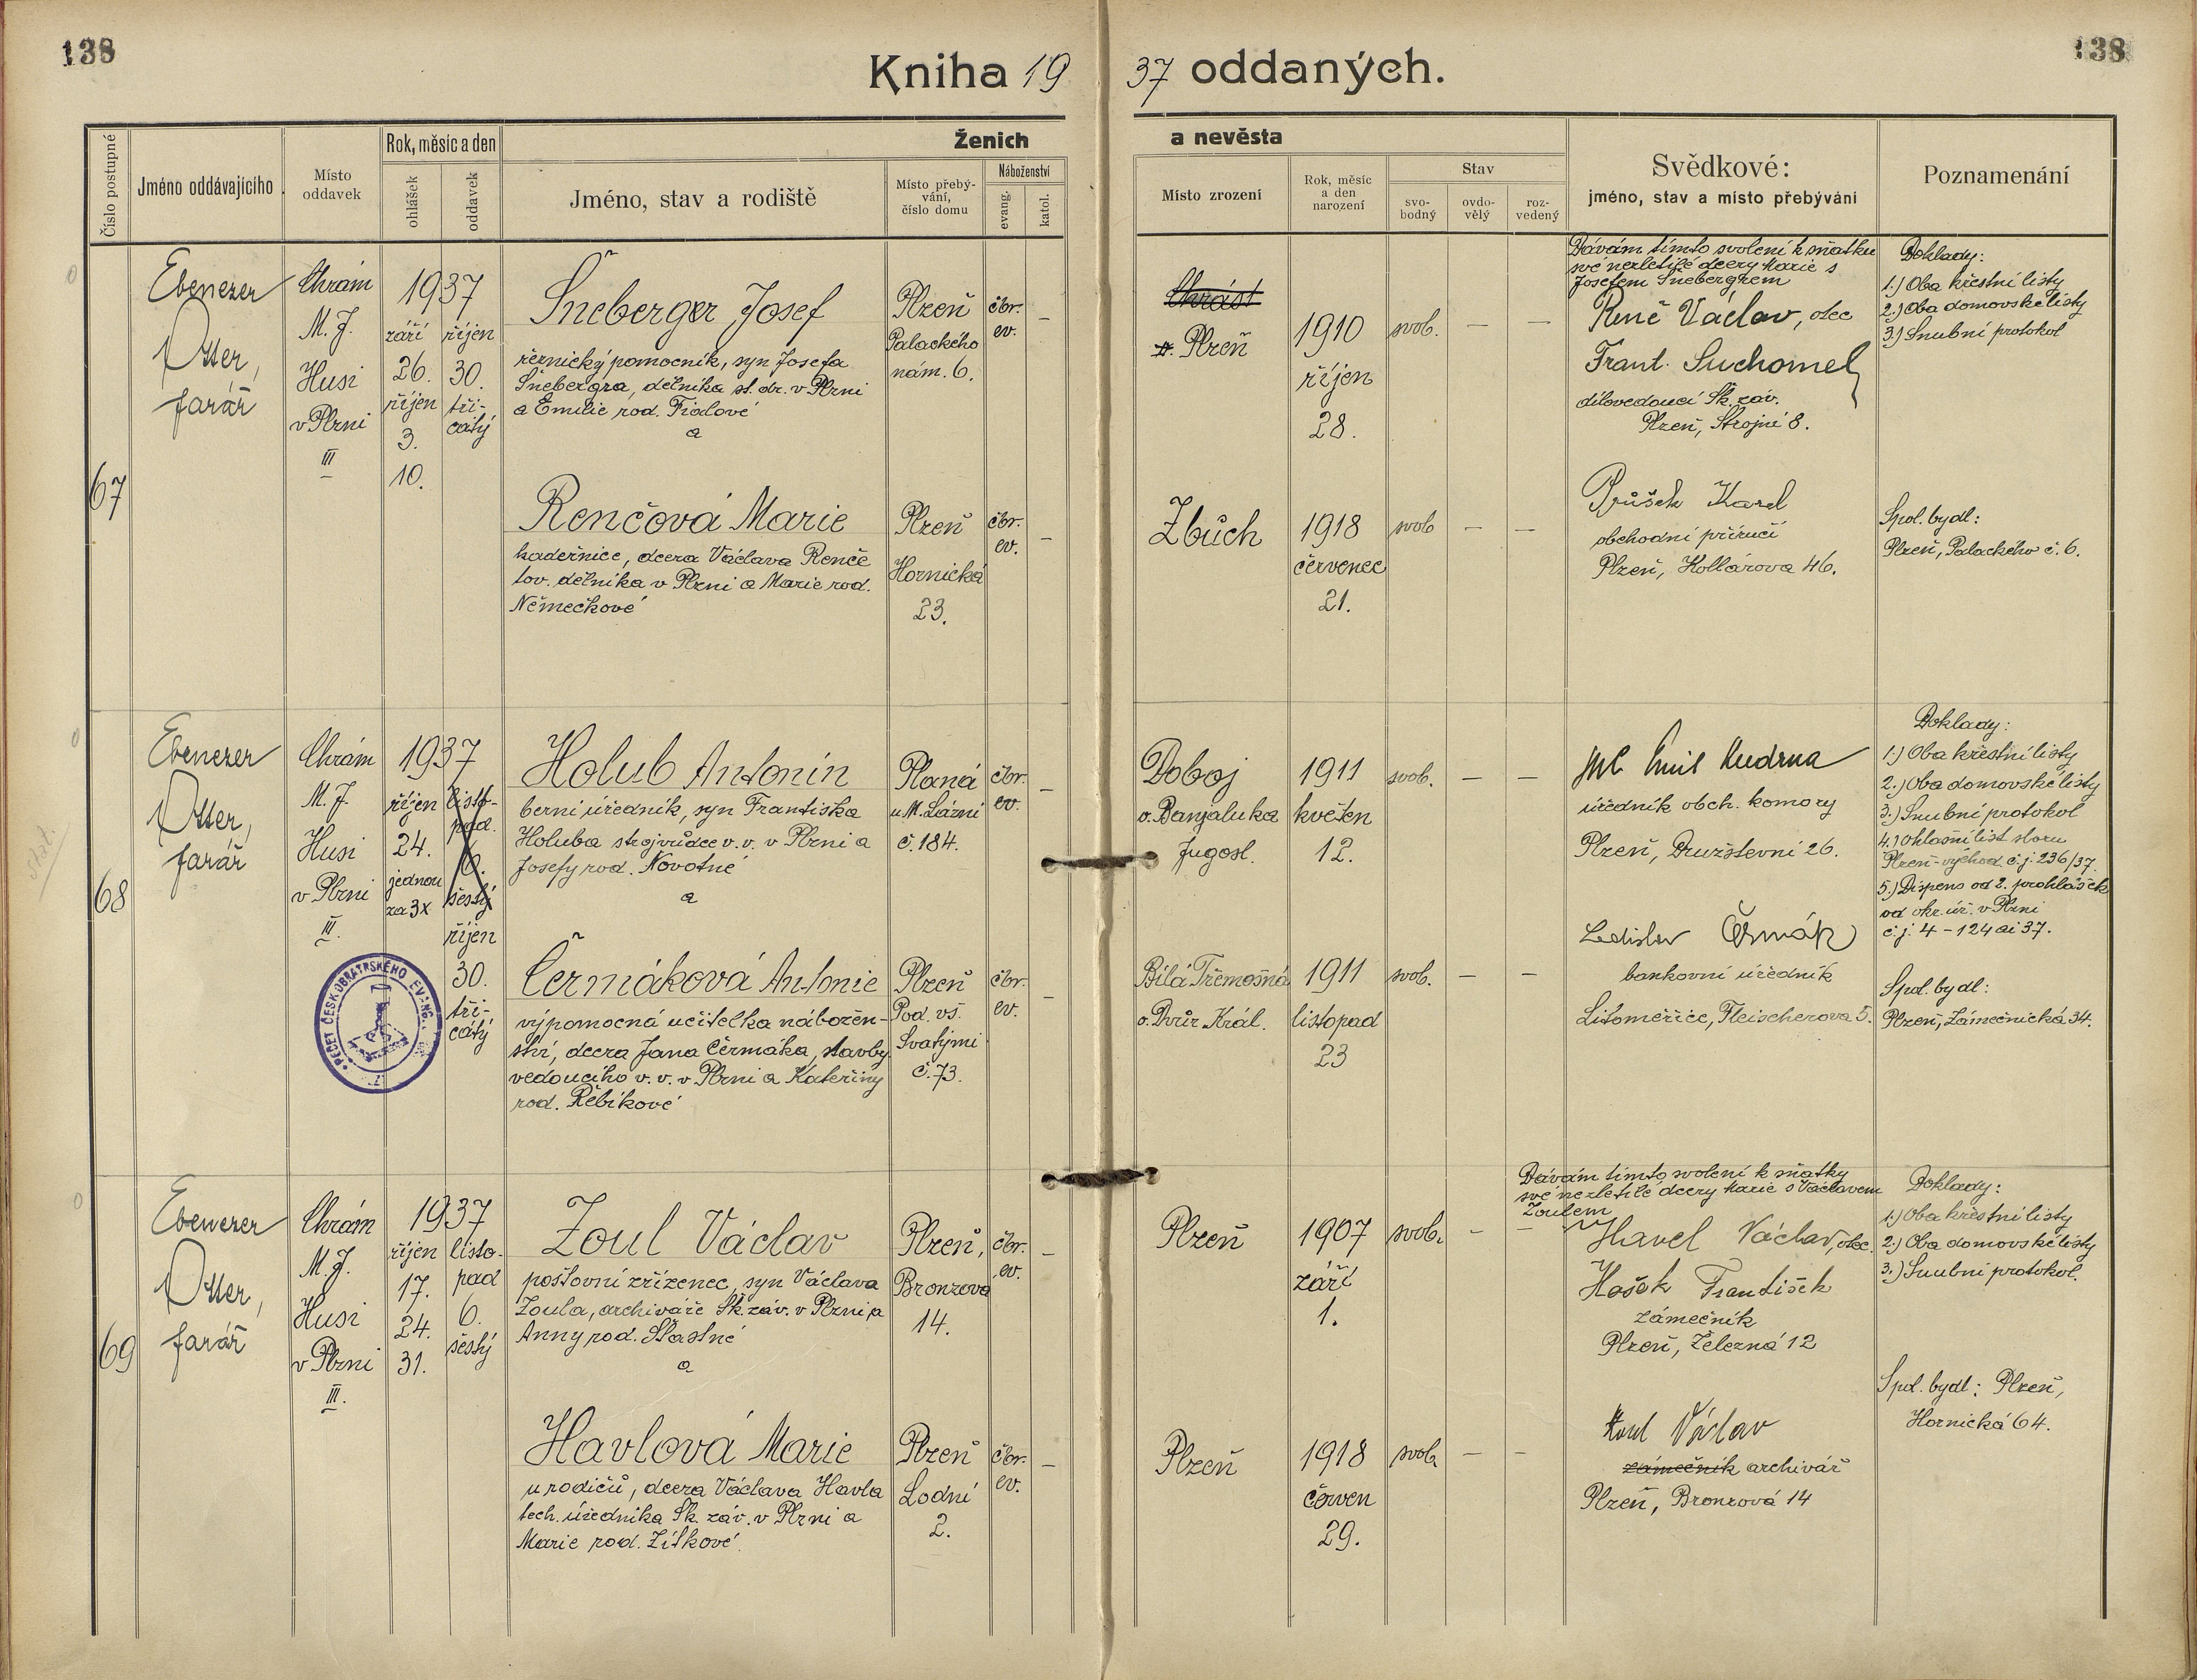 138
138
Kniha 1937 oddaných.
Číslo postupné
Jméno oddávajícího
Místo oddavek
Rok, měsíc a den
ohlášek
oddavek
Ženich
a nevěsta
Jméno, stav a rodiště
Místo přebý-
vání,
číslo domu
Náboženství
evang.
katol.
Místo zrození
Rok, měsíc
a den
narození
Stav
svo-
bodný
ovdo-
vělý
roz-
vedený
Svědkové:
jméno, stav a místo přebývání
Poznamenání
67
Ebenezer
Otter,
farář
Chrám
M. J.
Husi
v Plzni
III
1937
září
26.
říjen
3.
10.
říjen
30.
tři-
cátý
Šneberger Josef
řeznický pomocník, syn Josefa
Šnebergra, dělníka st. dr. v Plzni
a Emilie rod. Fialové
a
Plzeň
Palackého
nám. 6.
čbr.
ev.
–
Chrást
Plzeň
1910
říjen
28.
svob.
–
–
Dávám tímto svolení k sňatku
své nezletilé dcery Marie s
Josefem Šnebergrem
Renč Václav, otec
Frant. Suchomel
dílovedoucí Šk. záv.
Plzeň, Strojní 8.
Doklady:
1.) Oba křestní listy
2.) Oba domovské listy
3.) Snubní protokol
Renčová Marie
kadeřnice, dcera Václava Renče
tov. dělníka v Plzni a Marie rod.
Němečkové
Plzeň
Hornická
23.
čbr.
ev.
–
Zbůch
1918
červenec
21.
svob
–
–
Průšek Karel
obchodní příručí
Plzeň, Kollárova 46.
Spol. bydl:
Plzeň, Palackého č. 6.
68
Ebenezer
Otter,
farář
Chrám
M. J.
Husi
v Plzni
III.
1937
říjen
24.
jednou
za 3x
listo-
pad.
6.
šestý
říjen
30.
tři-
cátý
PEČEŤ ČESKOBRATRSKÉHO EVANG.
Holub Antonín
berní úředník, syn Františka
Holuba strojvůdce v. v. v Plzni a
Josefy rod. Novotné
a
Planá
u M. Lázní
č. 184.
čbr.
ev.
–
Doboj
o. Banjaluka
Jugosl.
1911
květen
12.
svob.
–
–
Emil Kudrna
úředník obch. komory
Plzeň, Družstevní 26.
Doklady:
1.) Oba křestní listy
2.) Oba domovské listy
3.) Snubní protokol
4.) Ohlašní list sboru
Plzeň-východ č. j. 236/37.
5.) Dispens od 2. prohlášek
od okr. úř. v Plzni
č. j. 4 - 124 ai 37.
Čermáková Antonie
výpomocná učitelka nábožen-
ství, dcera Jana Čermáka, stavby
vedoucího v. v. v Plzni a Kateřiny
rod. Řebíkové
Plzeň
Pod. vš.
Svatými
č. 73.
čbr.
ev.
–
Bílá Třemošná
o. Dvůr Král.
1911
listopad
23
svob.
–
–
Ladislav Čermák
bankovní úředník
Litoměřice, Fleischerova 5.
Spol. bydl:
Plzeň, Zámečnická 34.
69
Ebenezer
Otter,
farář
Chrám
M. J.
Husi
v Plzni
III.
1937
říjen
17.
24.
31.
listo-
pad
6.
šestý
Zoul Václav
poštovní zřízenec, syn Václava
Zoula, archiváře Šk. záv. v Plzni a
Anny rod. Šťastné
a
Plzeň,
Bronzová
14.
čbr.
ev.
–
Plzeň
1907
září
1.
svob.
–
–
Dávám tímto svolení k sňatky
své nezletilé dcery Marie s Václavem
Zoulem
Havel Václav, otec.
Hašek František
zámečník
Plzeň, Železná 12
Doklady:
1.) Oba křestní listy
2.) Oba domovské listy
3.) Snubní protokol.
Havlová Marie
u rodičů, dcera Václava Havla
tech. úředníka Šk. záv. v Plzni a
Marie rod. Zítkové.
Plzeň
Lodní
2.
čbr.
ev.
–
Plzeň
1918
červen
29.
svob.
–
–
Zoul Václav
zámečník archivář
Plzeň, Bronzová 14
Spol. bydl: Plzeň,
Hornická 64.